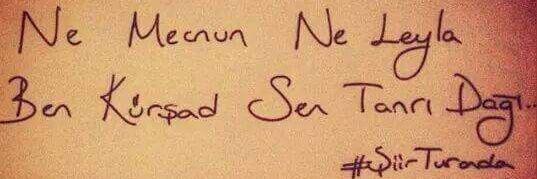 Ne Mecnun Ne Leyla
Ben Kürşad Sen Tanrı Dağı..
#ŞiirTurada